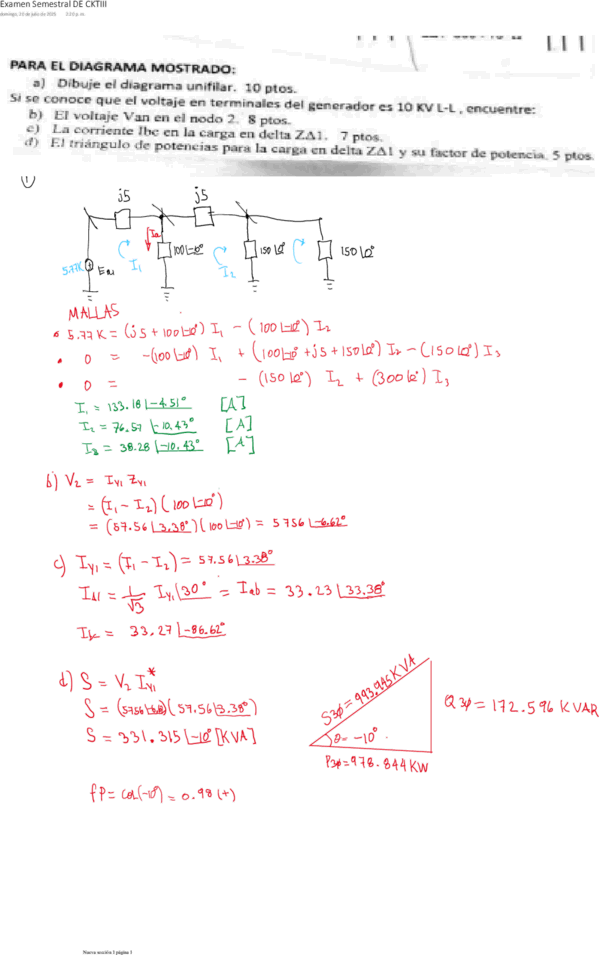 Examen Semestral DE CKTIII
domingo, 10 de julio de 2005 3:13 p. m.
PARA EL DIAGRAMA MOSTRADO:
a) Dibuje el diagrama unifilar. 10 ptos.
Si se conoce que el voltaje en terminales del generador es 10 KV L-L , encuentre:
b) El voltaje Van en el nodo 2. 8 ptos.
c) La corriente Ibc en la carga en delta Z∆1. 7 ptos.
d) El triángulo de potencias para la carga en delta Z∆1 y su factor de potencia. 5 ptos.
1)
j5 j5
Ia
100∠-10° 150∠0° 150∠0°
5.77K
I1 I2
MALLAS
• 5.77K = (j5 + 100∠-10°) I1 - (100∠-10°) I2
• 0 = -(100∠-10°) I1 + (100∠-10° + j5 + 150∠0°) I2 - (150∠0°) I3
• 0 = - (150∠0°) I2 + (300∠0°) I3
I1 = 133.18∠-4.51° [A]
I2 = 76.57∠-10.43° [A]
I3 = 38.28∠-10.43° [A]
b) V2 = IY1 ZY1
= (I1 - I2)(100∠-10°)
= (57.56∠3.38°)(100∠-10°) = 5756∠-6.62°
c) IY1 = (I1 - I2) = 57.56∠3.38°
I∆1 = 1/√3 IY1∠30° = Iab = 33.23∠33.38°
Ibc = 33.27∠-86.62°
d) S = V2 IY1*
S = (5756∠-6.62)(57.56∠3.38°)
S = 331.315∠-10° [KVA]
S3φ = 993.945KVA
θ= -10°
Q3φ = 172.596 KVAR
P3φ = 978.844KW
fP = cos(-10°) = 0.98 (+)
Nueva sección 1 página 1